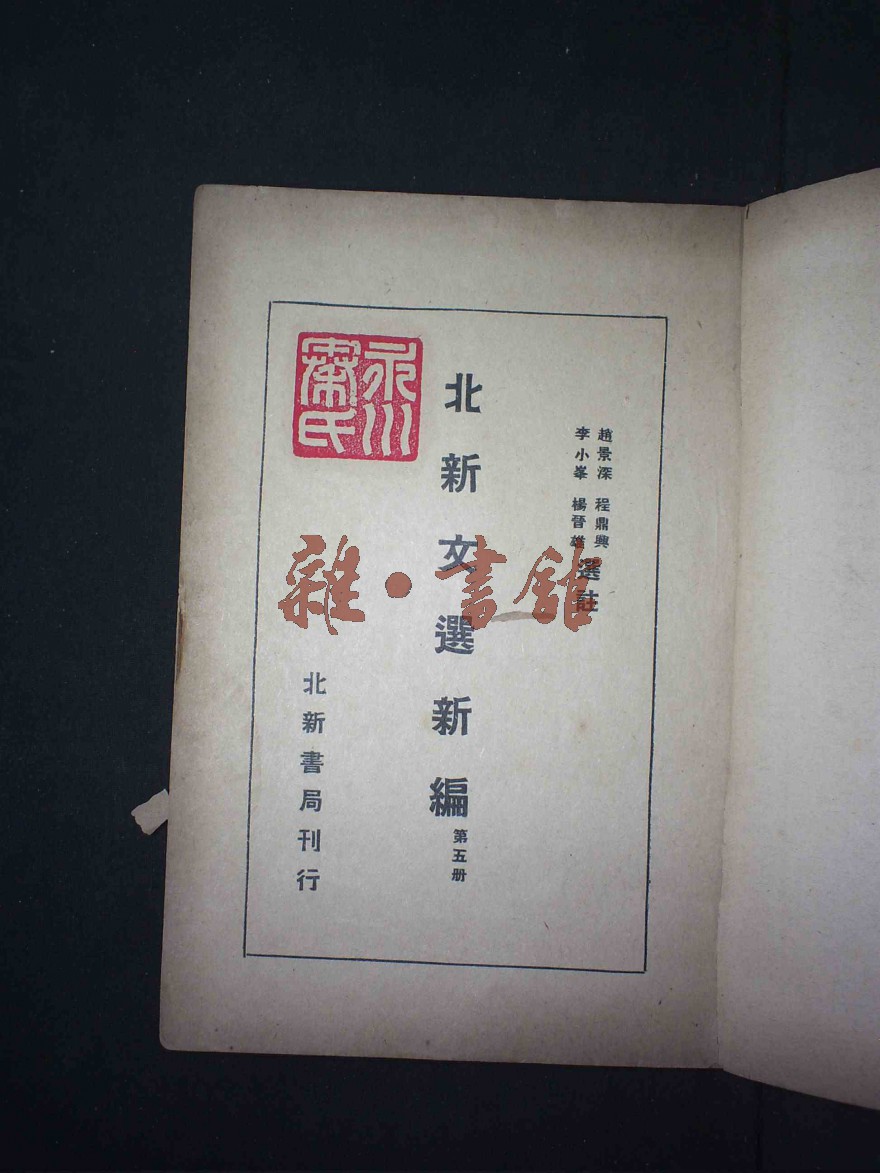 趙景深 程鼎興
李小峯 楊晉雄
選註
北新文選新編
第五册
北新書局刊行
永川
氏
雜·書館